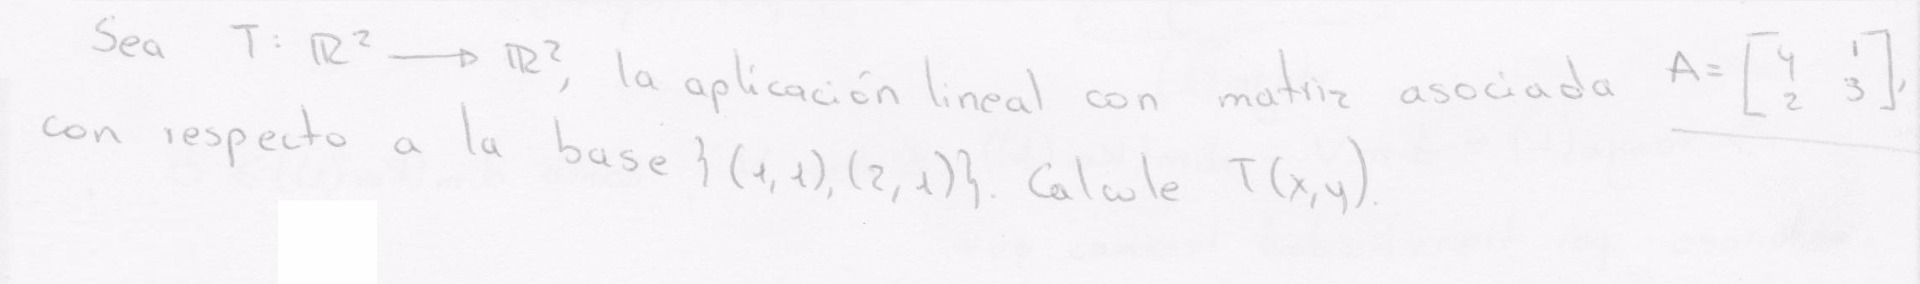 Sea T: ℝ² → ℝ², la aplicación lineal con matriz asociada A = [4 1; 2 3],
con respecto a la base {(1,1),(2,1)}. Calcule T(x,y).